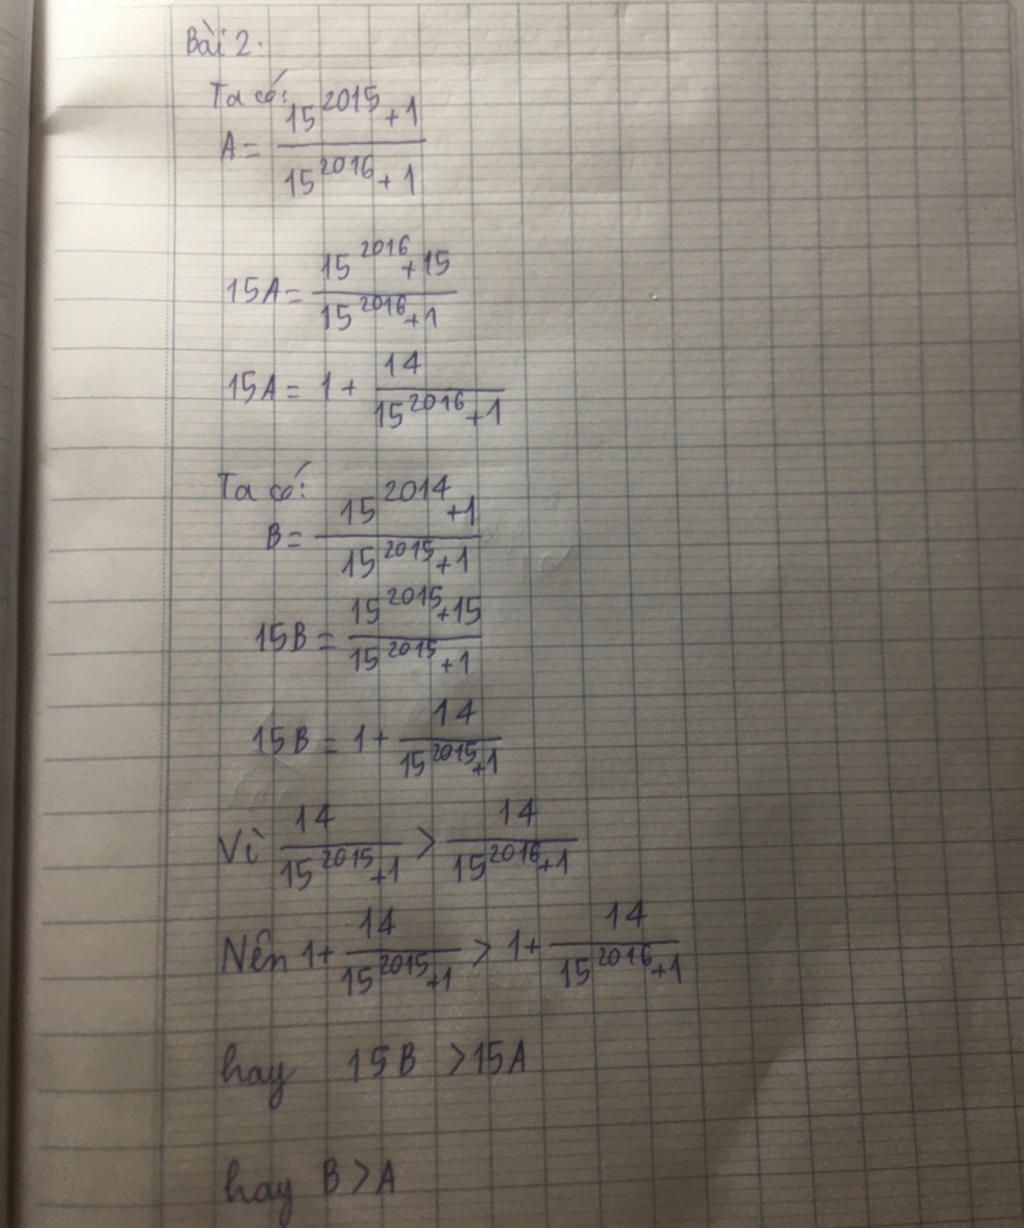 Bài 2.
Ta có:
A = \frac{15^{2015}+1}{15^{2016}+1}
15A = \frac{15^{2016}+15}{15^{2016}+1}
15A = 1 + \frac{14}{15^{2016}+1}
Ta có:
B = \frac{15^{2014}+1}{15^{2015}+1}
15B = \frac{15^{2015}+15}{15^{2015}+1}
15B = 1 + \frac{14}{15^{2015}+1}
Vì \frac{14}{15^{2015}+1} > \frac{14}{15^{2016}+1}
Nên 1 + \frac{14}{15^{2015}+1} > 1 + \frac{14}{15^{2016}+1}
hay 15B > 15A
hay B > A